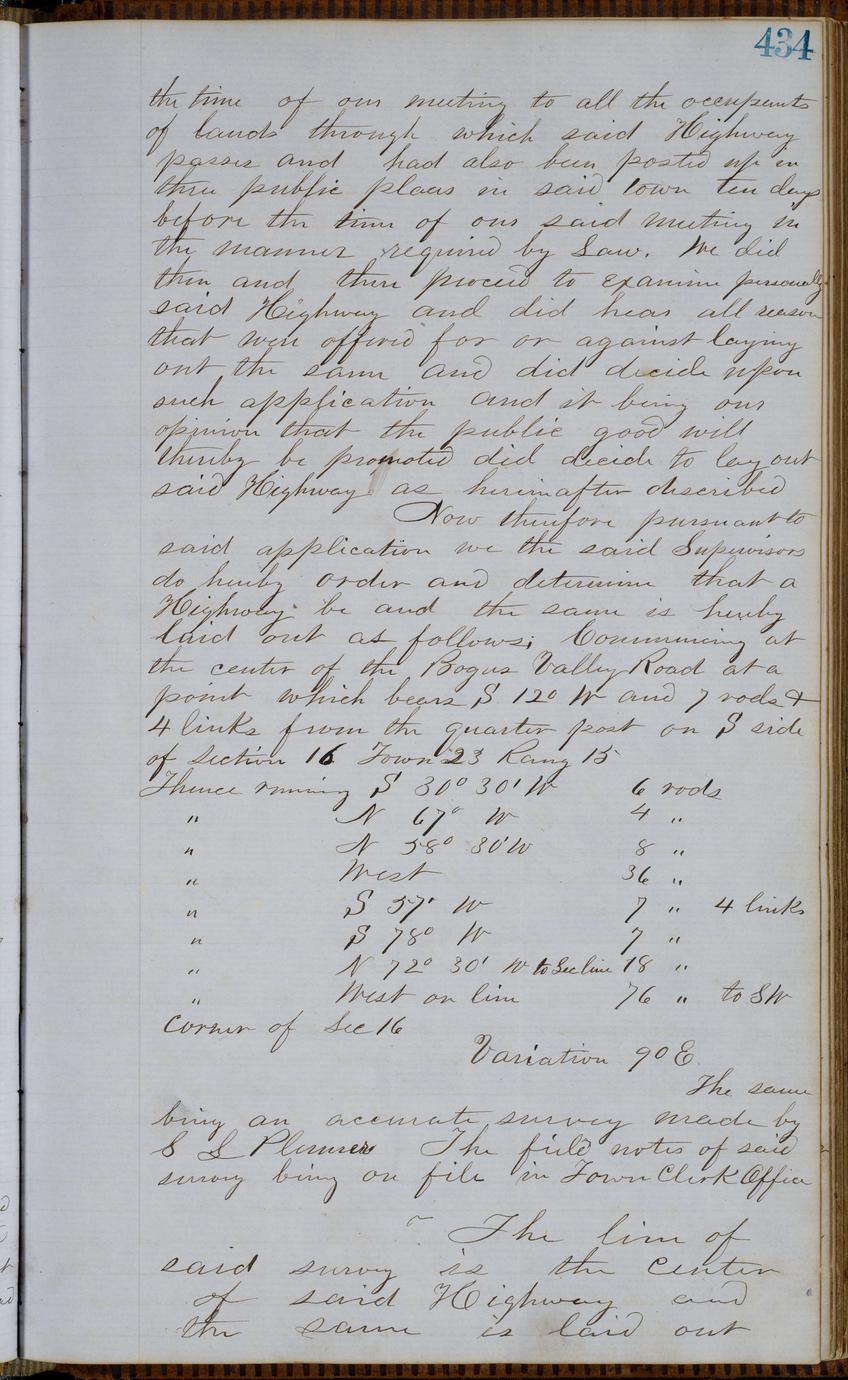 434
the time of our meeting to all the occupants
of lands through which said Highway
passes and had also been posted up in
three public places in said town ten days
before the time of our said meeting in
the manner required by Law. We did
then and there proceed to examine personally
said Highway and did hear all reason
that were offered for or against laying
out the same and did decide upon
such application and it being our
opinion that the public good will
thereby be promoted did decide to lay out
said Highway as hereinafter described
Now therefore pursuant to
said application we the said Supervisors
do hereby order and determine that a
Highway be and the same is hereby
laid out as follows; Commencing at
the center of the Bogus Valley Road at a
point which bears S 12° W and 7 rods &
4 links from the quarter post on S side
of section 16 Town 23 Rang 15
Thence running S 30° 30' W 6 rods
" N 67° W 4 "
" N 58° 30' W 8 "
" West 36 "
" S 57° W 7 " 4 links
" S 78° W 7 "
" N 72° 30' W to Sec line 18 "
" West on line 76 " to SW
corner of Sec 16
Variation 9° E
The same
being an accurate survey made by
S L Plummer The field notes of said
survey being on file in Town Clerk Office
The line of
said survey is the center
of said Highway and
the same is laid out